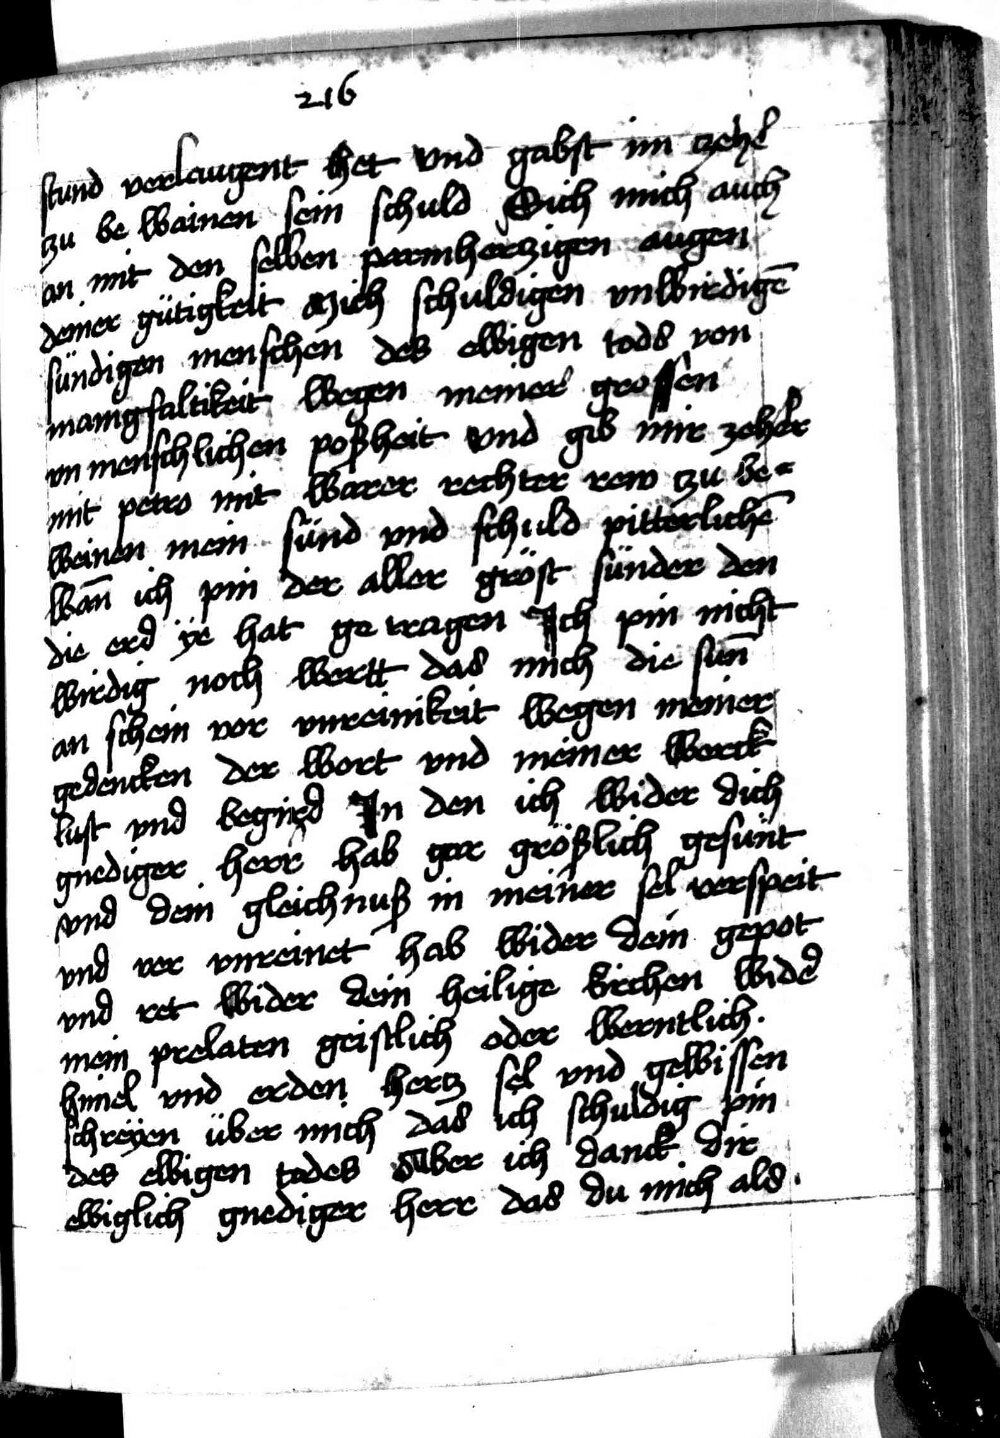 216
stund verlaugent het vnd gabst im zehe᷑
zu be wainen sein schuld Sich mich auch
an mit den selben parmhertzigen augen
deiner gütigkeit Mich schuldigen vnwirdigē
sündigen menschen des ewigen tods von
manigfaltikeit wegen meiner grossen
vn menschlichen poßheit vnd gib mir zeher
mit petro mit warer rechter rew zu be=
weinen mein sünd vnd schuld pitterlichē
wañ ich pin der aller gröst sünder den
die erd ÿe hat ge tragen Ich pin nicht
wirdig noch wertt das mich die suñ
an schein vor vnreinikeit wegen meiner
gedencken der wort vnd meiner werck
lust vnd begird In den ich wider dich
gnediger herr hab gar größlich gesünt
vnd dein gleichnuß in meiner sel verspeit
vnd ver vnreinet hab wider dein gepot
vnd ret wider dein heilige kirchen wide᷑
mein prelaten geistlich oder werntlich.
himel vnd erden hertz sel vnd gewissen
schreÿen über mich das ich schuldig pin
des ewigen todes Aber ich danck dir
ewiglich gnediger herr das du mich als.